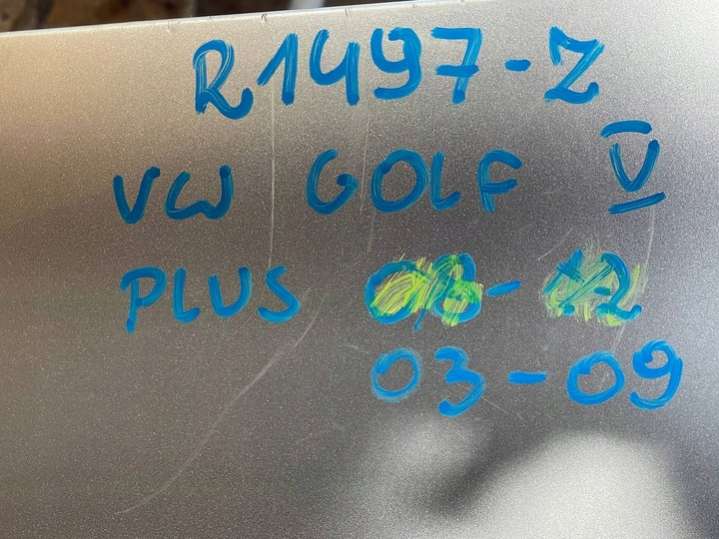 R1497-Z
VW GOLF V
PLUS
03-09